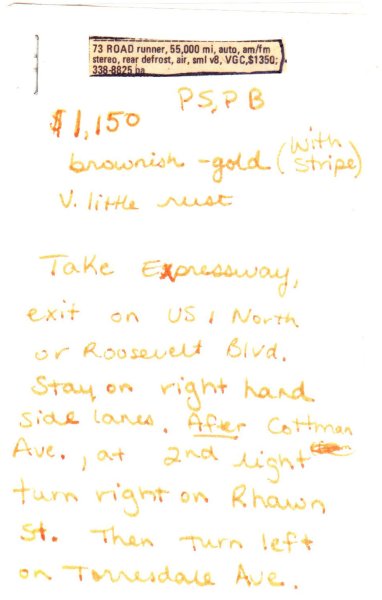 73 ROAD runner, 55,000 mi, auto, am/fm
stereo, rear defrost, air, sml v8, VGC,$1350;
338-8825 pa
PS, PB
$1,150
brownish - gold (with stripe)
V. little rust
Take Expressway,
exit on US 1 North
or Roosevelt Blvd.
Stay on right hand
side lanes. After Cottman
Ave., at 2nd light
turn right on Rhawn
St. Then turn left
on Torresdale Ave.